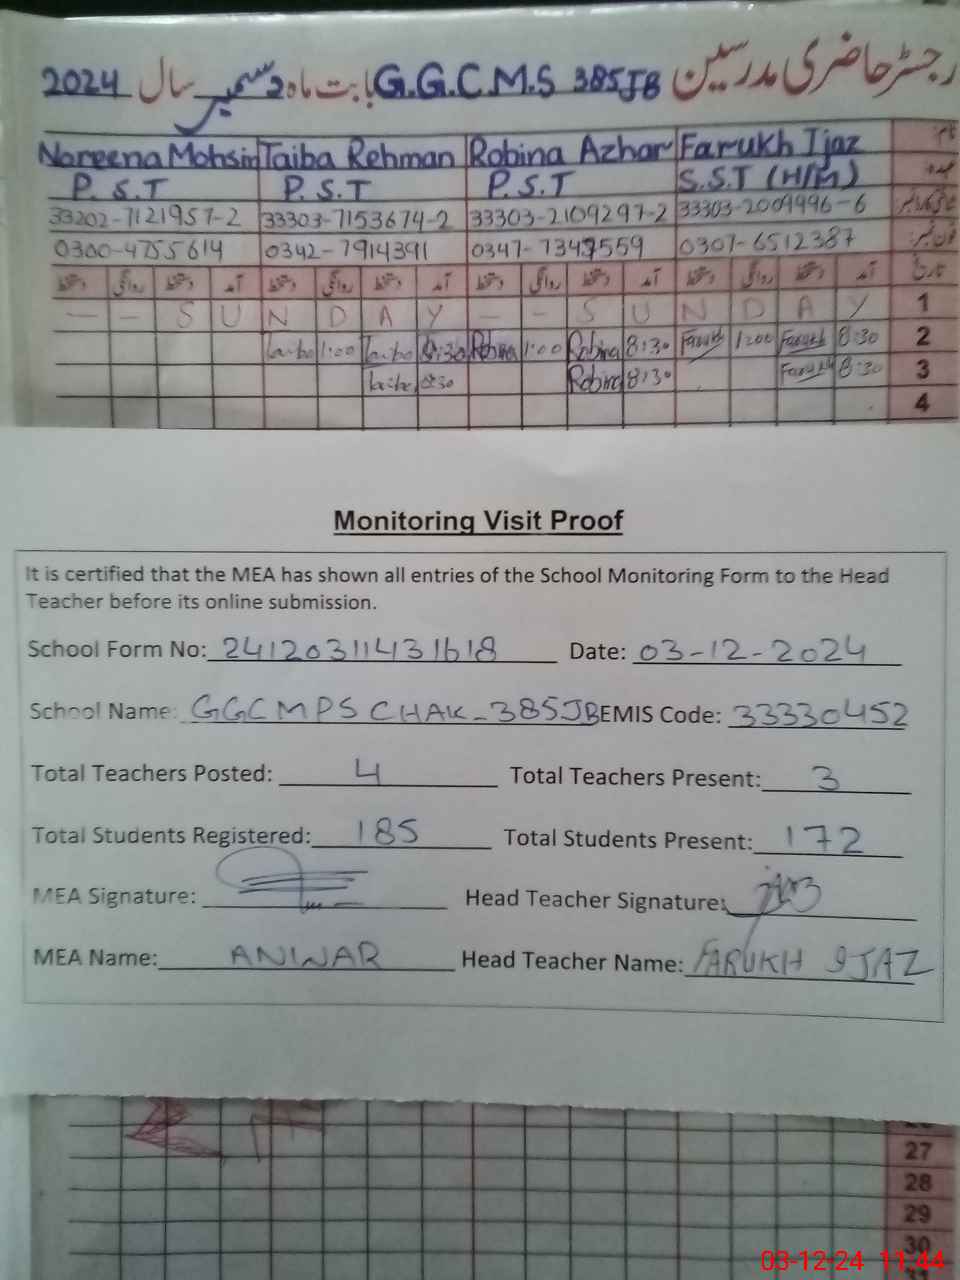 رجسٹر حاضری مدرسین G.G.C.M.S 385JB بابت ماہ دسمبر سال 2024
Nareena Mohsin Taiba Rehman Robina Azhar Farukh Ijaz نام
P.S.T P.S.T P.S.T S.S.T (H/M) عہدہ
33202-7121957-2 33303-7153674-2 33303-2109297-2 33303-2009996-6
0300-4755614 0342-7914391 0347-7347559 0307-6512387 فون نمبر
دستخط روانگی دستخط آمد دستخط روانگی دستخط آمد دستخط روانگی دستخط آمد دستخط روانگی دستخط آمد تاریخ
— — S U N D A Y — — S U N D A Y 1
Taiba 1:00 Taiba 8:30 Robina 1:00 Robina 8:30 Farukh 1:00 Farukh 8:30 2
Taiba 8:30 Robina 8:30 Farukh 8:30 3
4
Monitoring Visit Proof
It is certified that the MEA has shown all entries of the School Monitoring Form to the Head
Teacher before its online submission.
School Form No: 24120311431618 Date: 03-12-2024
School Name: GGCMPS CHAK-385JB EMIS Code: 33330452
Total Teachers Posted: 4 Total Teachers Present: 3
Total Students Registered: 185 Total Students Present: 172
MEA Signature: Head Teacher Signature:
MEA Name: ANWAR Head Teacher Name: FARUKH IJAZ
27
28
29
30
03-12-24 11:44